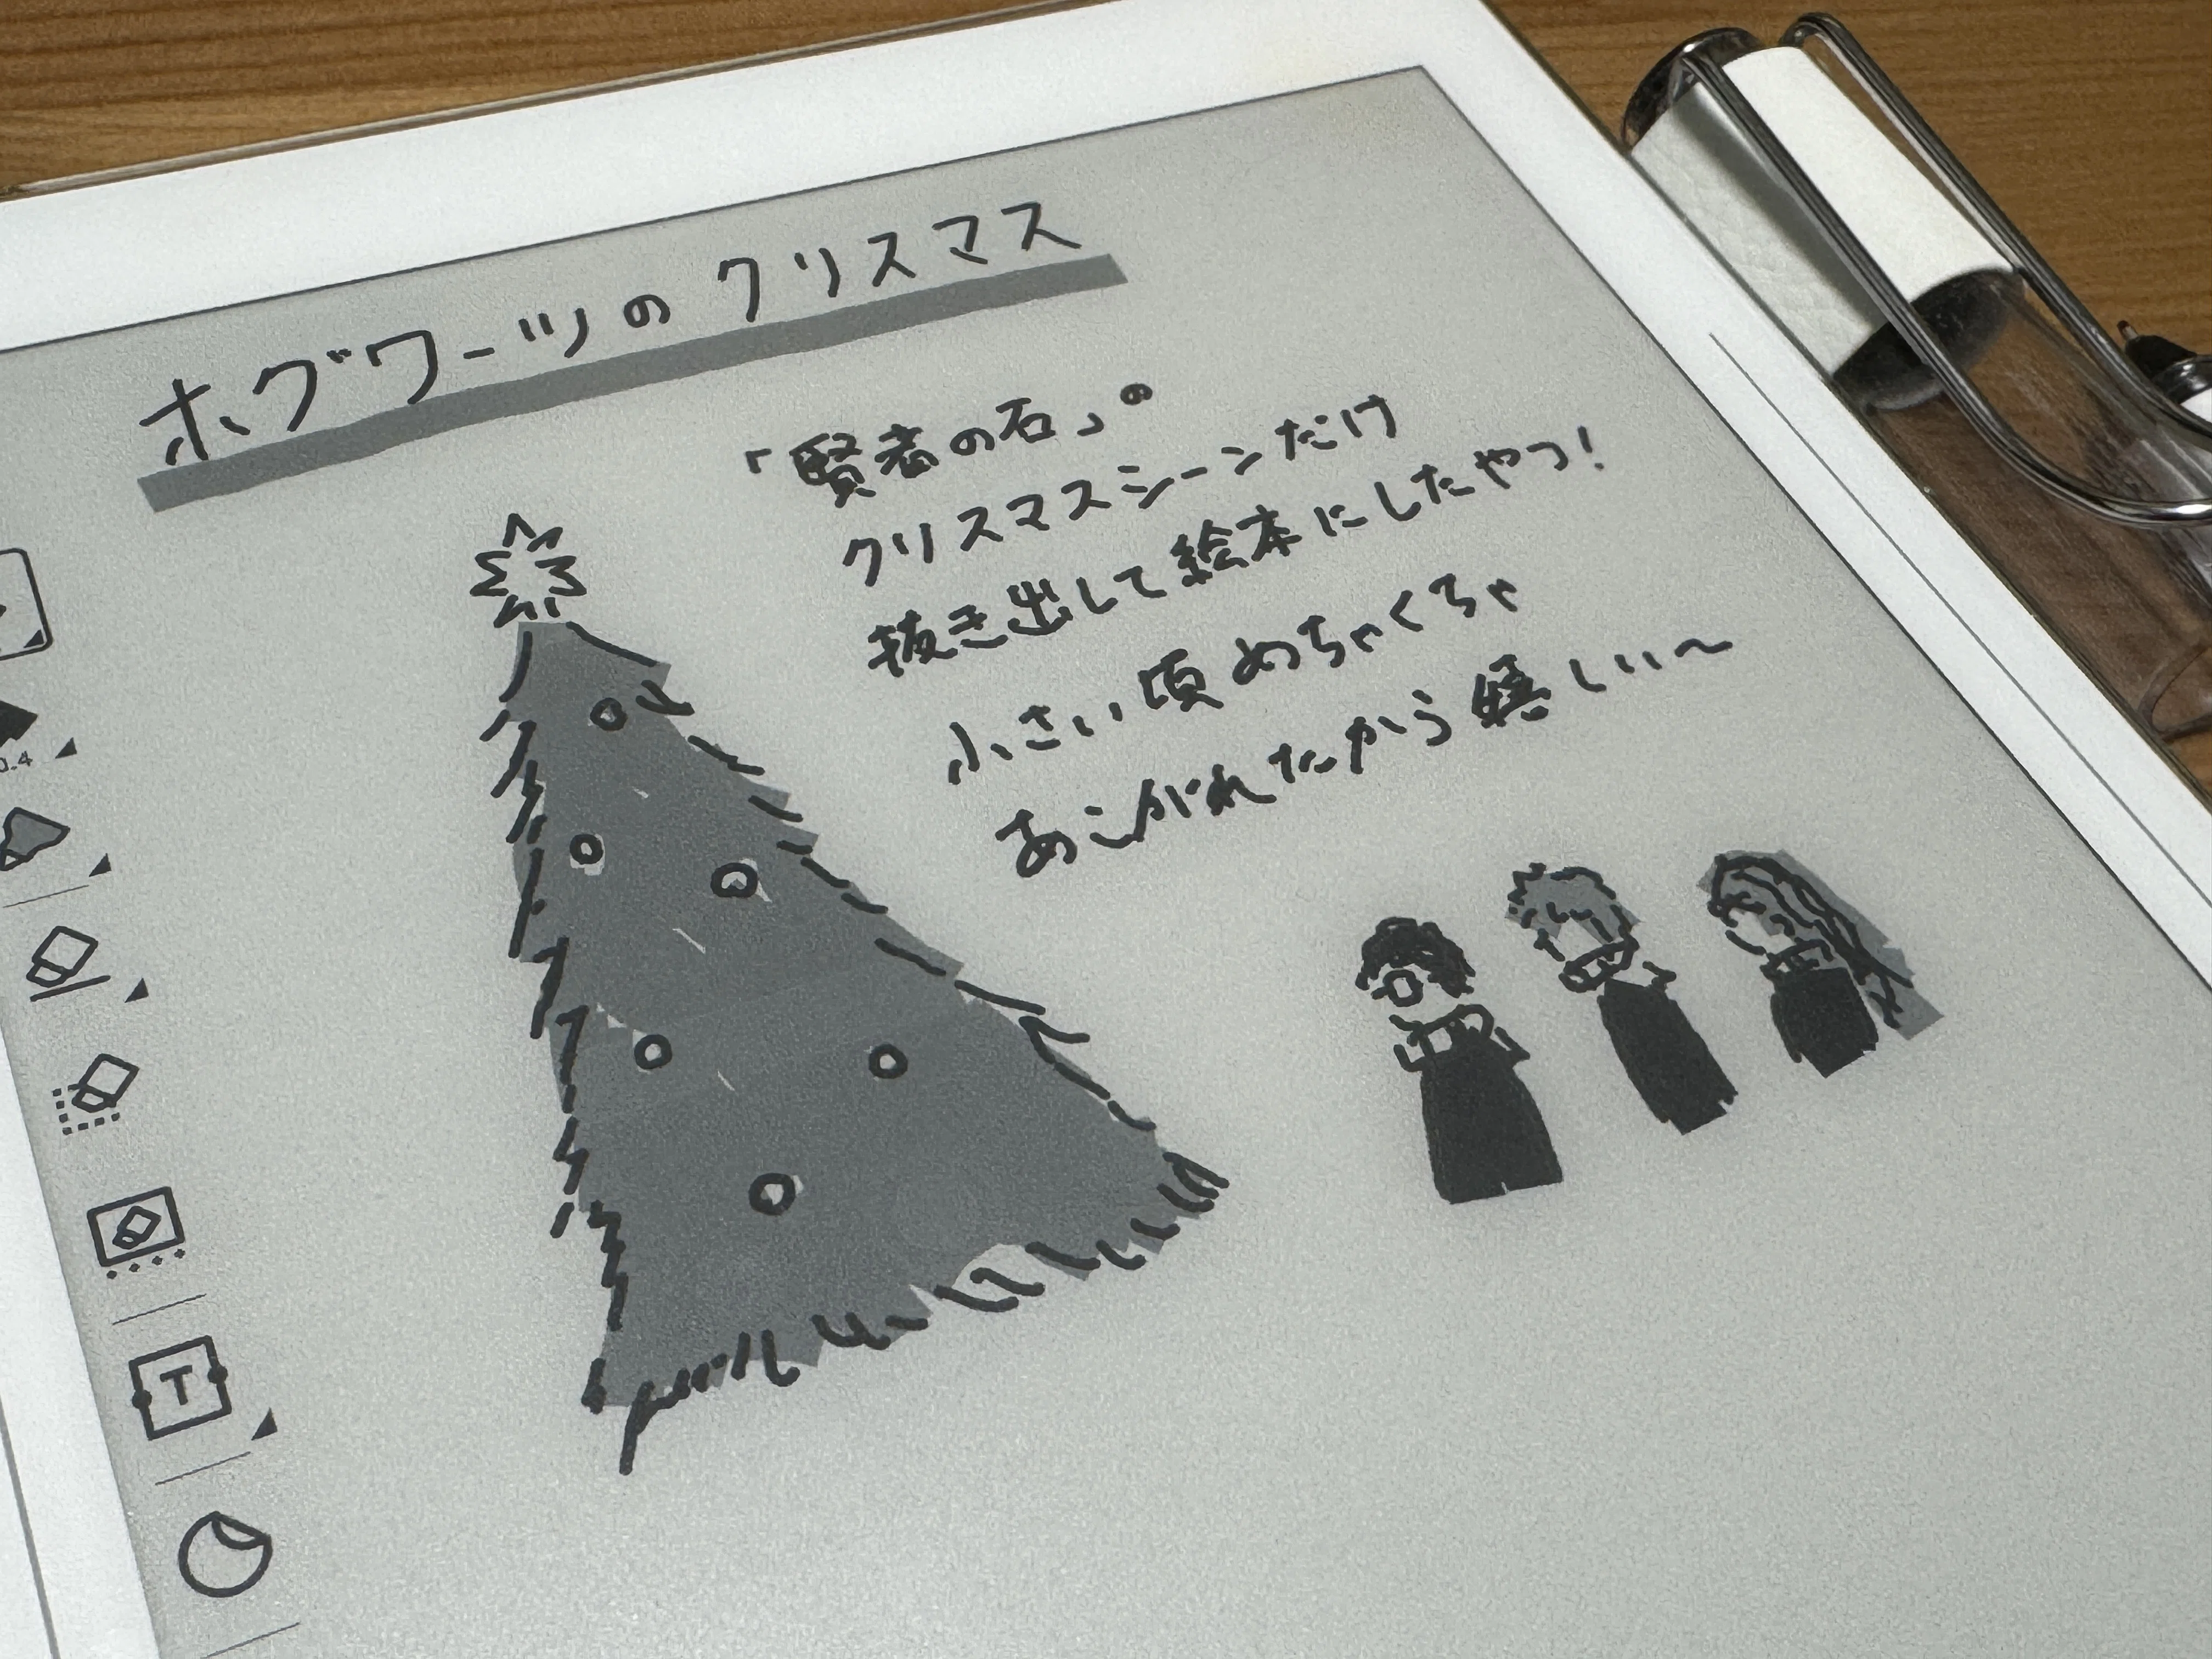 ホグワーツのクリスマス
「賢者の石」の
クリスマスシーンだけ
抜き出して絵本にしたやつ!
小さい頃めちゃくちゃ
あこがれたから嬉しい〜
0.4
T